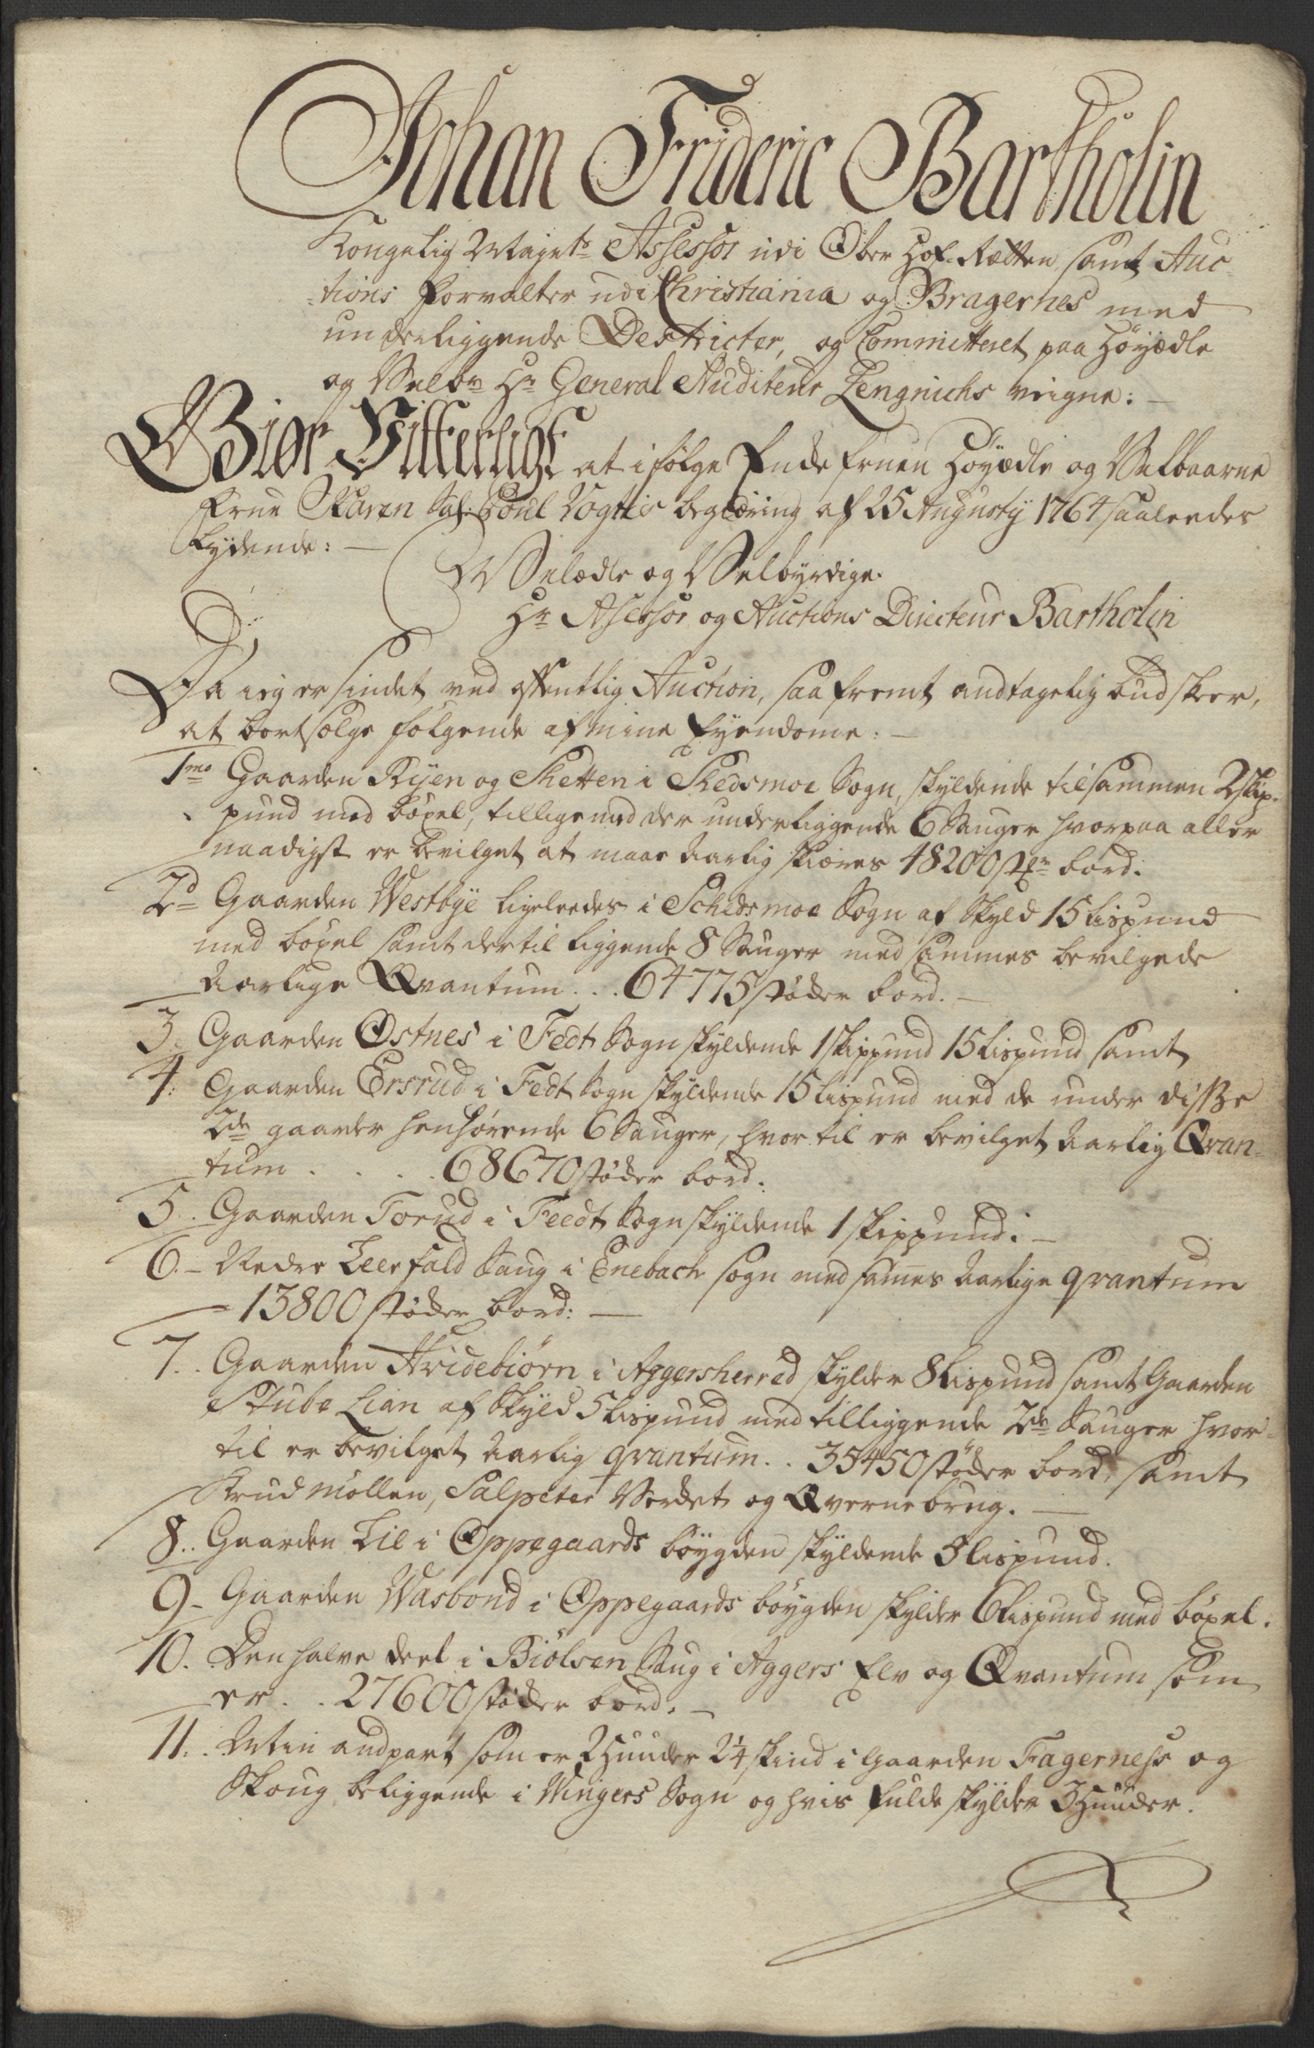 Johan Frideric Bartholin
Kongelig Mayts Assessor udi Ober Hof-Rætten samt Auc-
tions Forvalter udi Christiania og Bragernes med
underliggende Destricter, og Committeret paa Høyædle
og Velbr Hr General Auditeur Lengnichs veigne:
Giør Vitterligt at ifølge Ende Fruen Høyædle og Velbaarne
Frue Karen Sal: Poul Vogtes begiæring af 25 Augusty 1764 saaleedes
Lydende:
Velædle og Velbyrdige.
Hr Assessor og Auctions Directeur Bartholin
Da ieg er sindet ved offentlig Auction, saafremt andtagelig bud skeer,
at bortsælge følgende af mine Eyendome:
1mo Gaarden Ryen og Sketten i Skedsmoe Sogn, skyldende tilsammen 2 skip-
pund med böxel, tilligemed der underliggende 6 Sauger hvorpaa aller
naadigst er bevilget at maae aarlig skiæres 48200 støder bord.
2d Gaarden Westbye ligeleedes i Schedsmoe Sogn af Skyld 15 Lispund
med böxel samt dertil liggende 8 Sauger med sammes bevilgede
Aarlige Qvantum . . . 64775 støder bord.
3. Gaarden Østnes i Fedt Sogn skyldende 1 skippund 15 Lispund samt
4: Gaarden Ersrud i Fedt Sogn skyldende 15 Lispund med de under disse
2de gaarder henhørende 6 Sauger, hvortil er bevilget aarlig Qvan-
tum . . . . 68670 støder bord.
5. Gaarden Torud i Feedt Sogn skyldende 1 skippund:
6. Nedre Leerfald Saug i Enebach sogn med sames aarlige qvantum
13800 støder bord:
7. Gaarden Hvidebiørn i Aggersherred skylder 8 Lispund samt Gaarden
Stubelian af Skyld 5 Lispund med tilliggende 2de Sauger hvor-
til er bevilget aarlig qvantum . . 35450 støder bord, samt
Krudmøllen, Salpeter Verdet og Qvernebrug.
8. Gaarden Lil i Oppegaards böygden skyldende 5 Lispund.
9 Gaarden Wasbond i Oppegaards böygden skylder 6 Lispund med böxel.
10. Den halve deel i Biölsen Saug i Aggers Elv og Qvantum som
er . . 27600 støder bord.
11. Min andpart som er 2 Huuder 2¼ skind i Gaarden Fagerness og
Skoug beliggende i Wingers Sogn og hvis fulde skylder 3 Huuder.